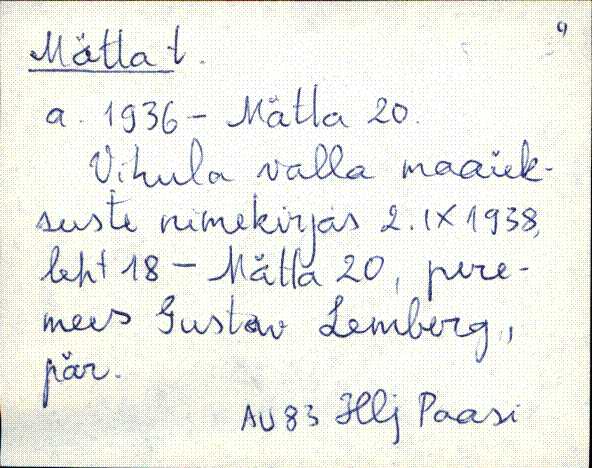 9
Mätla t.
a. 1936 - Mätla 20.
Vihula valla maaük-
suste nimekirjas 2. IX 1938,
leht 18 - Mätla 20, pere-
mees Gustav Lemberg,
pär.
AU 83 Hlj Paasi